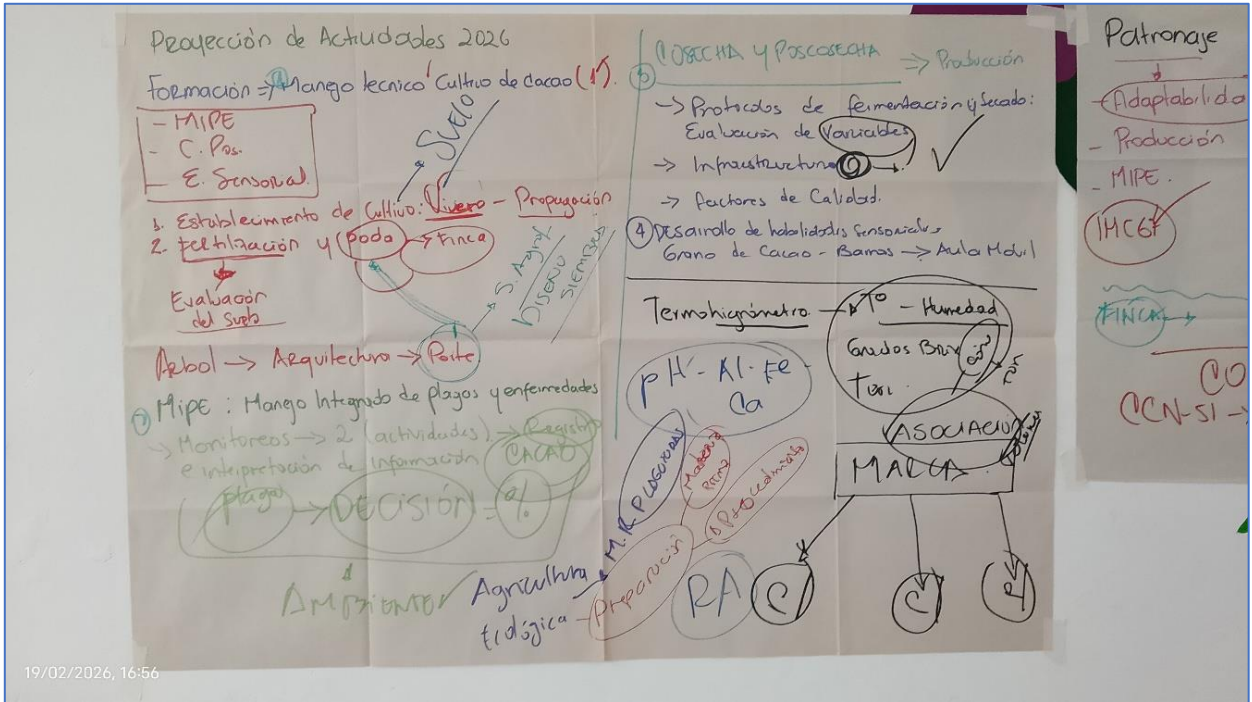 Proyección de Actividades 2026
Formación => Manejo tecnico Cultivo de cacao (1).
- MIPE
- C. Pos.
- E. Sensorial.
SUELO
1. Establecimiento de Cultivo: Vivero - Propagación
2. Fertilización y poda -> Finca
Evaluación
del Suelo
S. Agrof
DISEÑO
SIEMBRA
Arbol -> Arquitectura -> Porte
MIPE : Manejo Integrado de plagas y enfermedades
-> Monitoreos -> 2 (actividades) -> Registro
e interpretación de información CACAO
plaga -> DECISIÓN = %
AMBIENTE
Agricultura
Ecológica - Preparación
M.R. PLAGUICIDAS
Materia
Prima
Procedimiento
3 COSECHA Y POSCOSECHA => Producción
-> Protocolos de fermentación y Secado:
Evaluación de Variables
-> Infraestructura
-> Factores de Calidad.
4 Desarrollo de habilidades Sensoriales
Grano de Cacao - Barras -> Aula Movil
Termohigrómetro -> T° - Humedad
Grados Brix
pH - Al - Fe
Ca
ASOCIACION
MARCA
RA
C
P
Patronaje
- Adaptabilida
- Producción
- MIPE.
FINCA ->
CO
CCN-51 ->
19/02/2026, 16:56